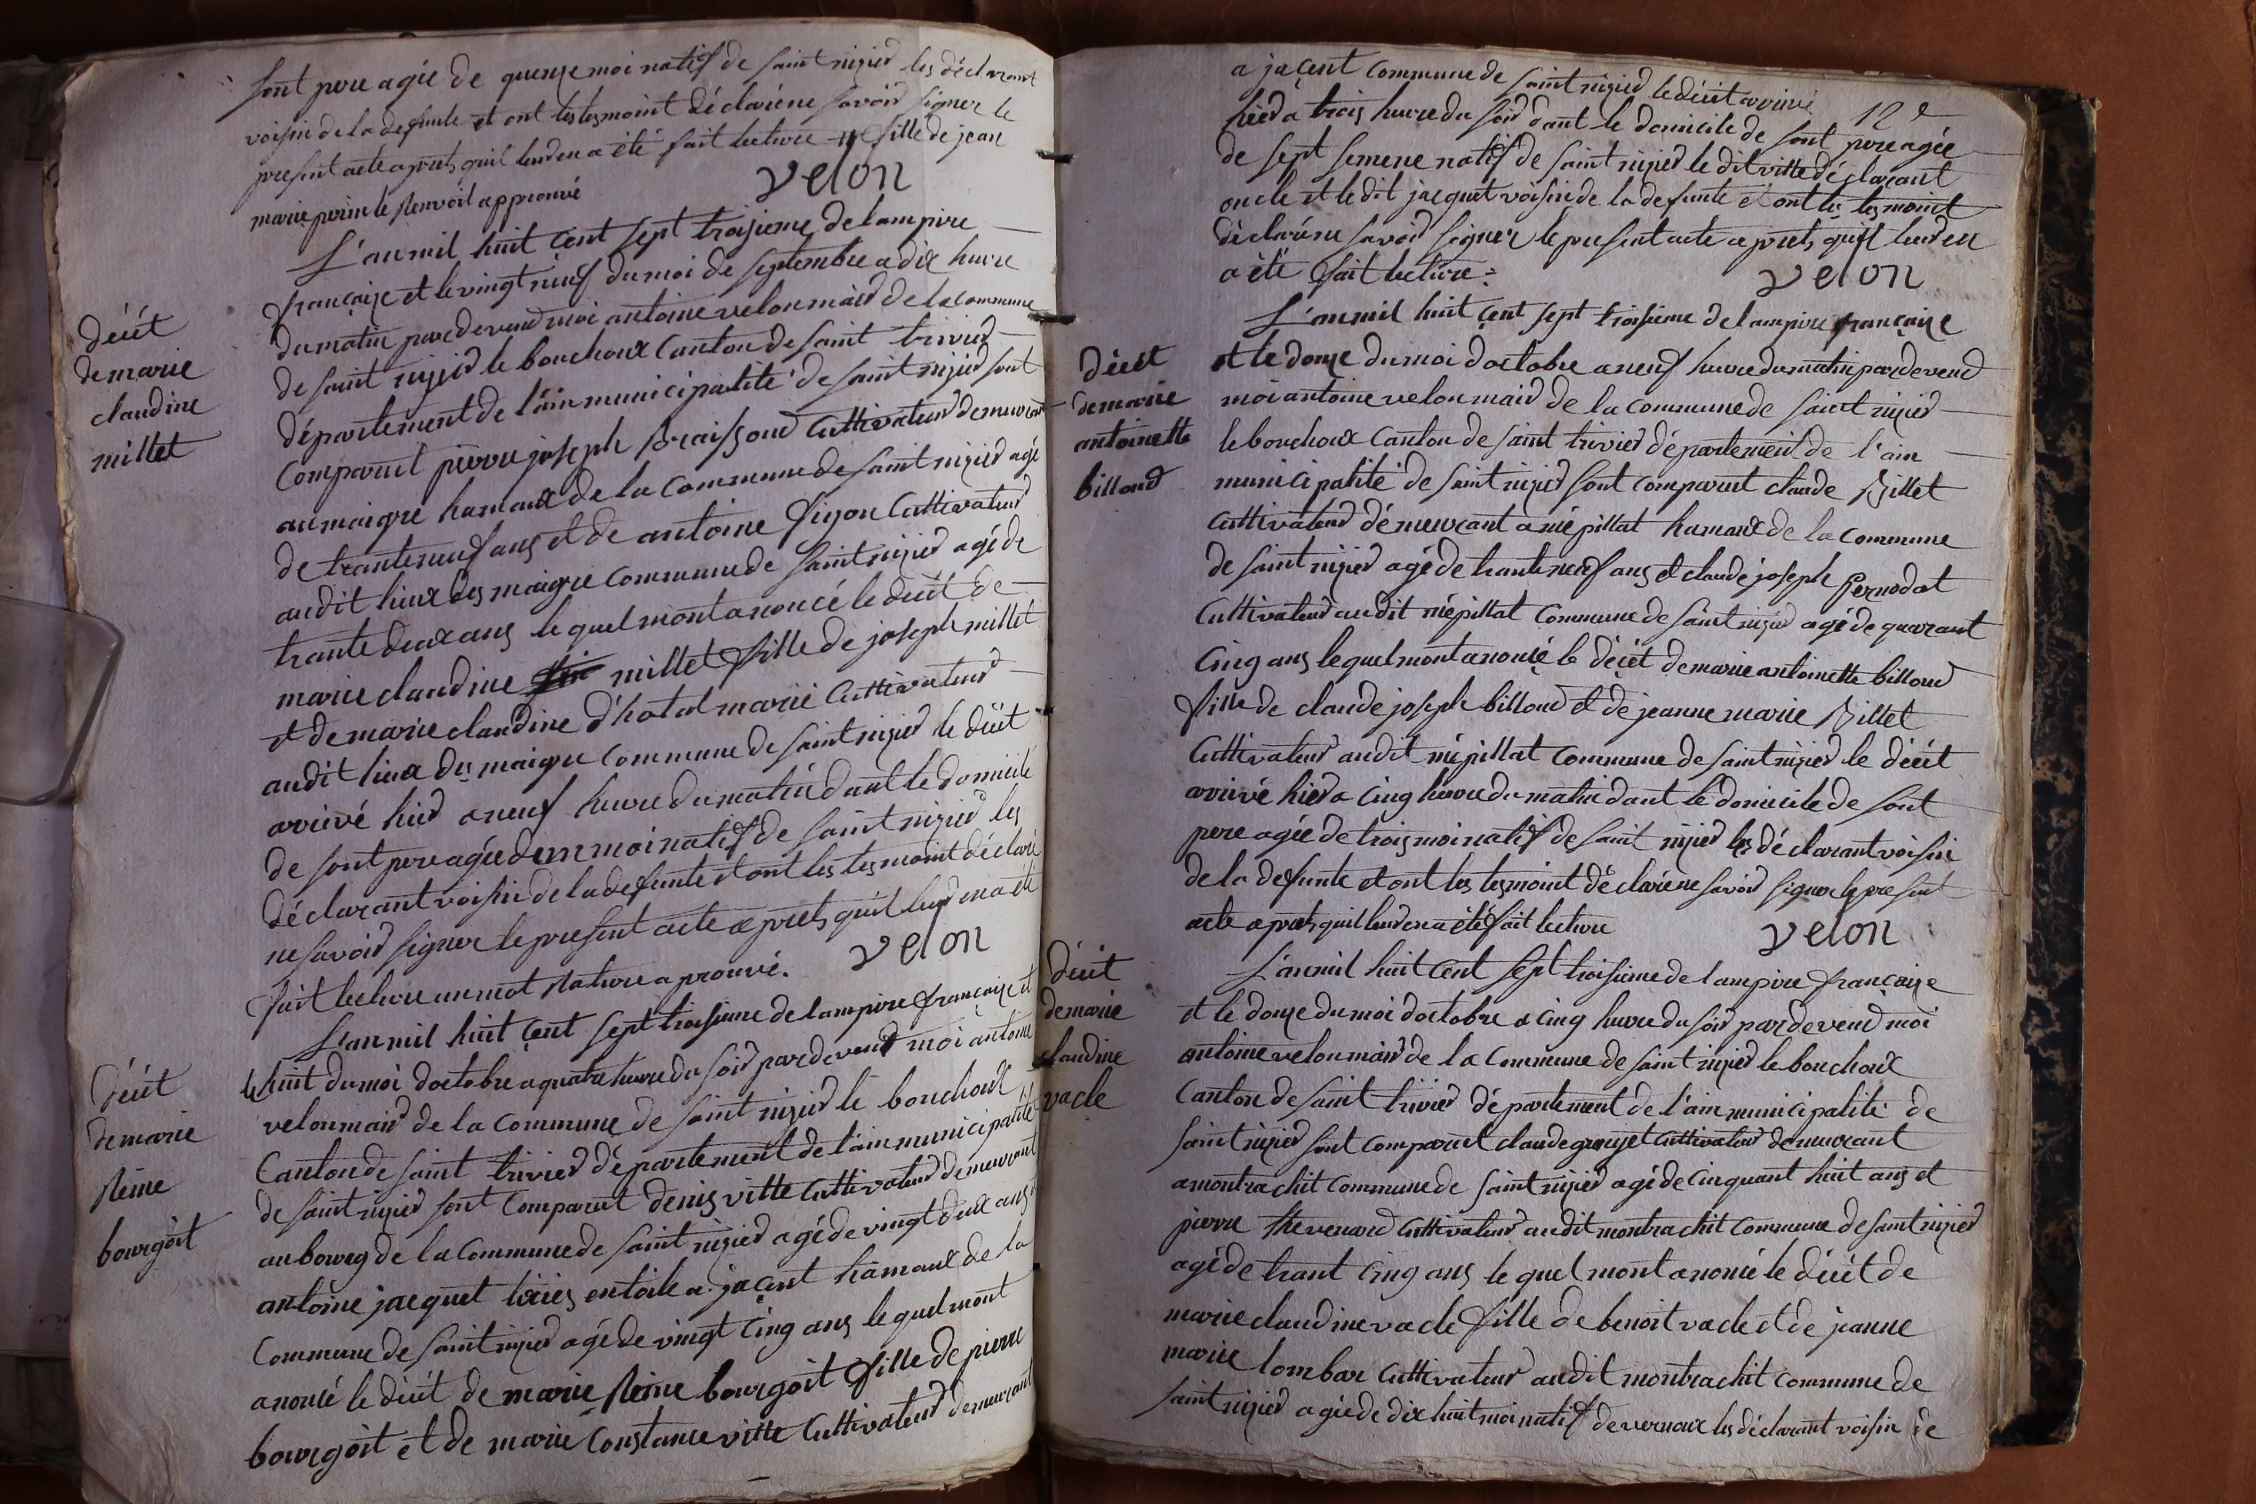 sont pere agée de quenze moi natif de saint nizier les déclarant
voisin de la defunte et ont les tesmoint déclaréne savoir signer le
present acte aprets quil leur en a été fait lecture fille de jean
marie le Renvoit approuvé
velon
L'an mil huit cent sept troisieme de lampire
françaize et le vingt neuf du moi de septembre a dix heure
du matin pardevend moi antoine velon maird de la commune
décét
de marie
claudine
millet
de saint nizier le bouchoux Canton de saint trivier
département de l'ain municipalité de saint nizier sont
comparut pierre joseph cuttivateur demeurant
au maigre hamaux de la commune de saint nizier agé
de trante neuf ans et de antoine cuttivateur
audit lieux des maigre commune de saint nizier agé de
trante deux ans le quel mont anoncé le décét de
marie claudine millet fille de joseph millet
et de marie claudine d'hotal marié cuttivateur
audit lieux du maigre commune de saint nizier le décét
arrivé hier a neuf heure du matin dant le domicile
de sont pere agée dun moi natif de saint nizier les
déclarant voisin de la defunte et ont les tesmoint déclaré
ne savoir signer le present acte aprets quil leur en a été
fait lecture un mot Rature aprouvé.
velon
L'an mil huit cent sept troisieme de lampire françaize et
le huit du moi doctobre a quatre heure du soir pardevend moi antoine
décét
de marie
Reine
bourgoit
velon maird de la commune de saint nizier le bouchoux
Canton de saint trivier département de l'ain municipalité
de saint nizier sont comparut denis vitte cuttivateur demeurant
au bourg de la commune de saint nizier agé de vingt deux ans
antoine jacquet en toile a jaçent hamaux de la
commune de saint nizier agé de vingt cinq ans le quel mont
anoncé le décét de marie Reine bourgoit fille de pierre
bourgoit et de marie constance vitte cuttivateur demeurant
12e
a jaçent commune de saint nizier le décét arrivé
hier a trois heure du soir dant le domicile de sont pere agée
de sept semene natif de saint nizier le dit vitte déclarant
oncle et le dit jacquet voisin de la defunte et ont les tesmoint
déclaréne savoir signer le present acte aprets quil leur en
a été fait lecture
velon
L'an mil huit cent sept troisieme de lampire françaize
et le douze du moi doctobre a neuf heure du matin pardevend
décét
de marie
antoinette
billoud
moi antoine velon maird de la commune de saint nizier
le bouchoux Canton de saint trivier département de l'ain
municipalité de saint nizier sont comparut claude Billet
cuttivateur démeurant a mépillat hamaux de la commune
de saint nizier agé de trante neuf ans et claude joseph Pernodat
cuttivateur audit mépillat commune de saint nizier agé de quarant
cinq ans lequel mont anoncé le décét de marie antoinette billoud
fille de claude joseph billoud et de jeanne marie Billet
cuttivateur audit mépillat commune de saint nizier le décét
arrivé hier a cinq heure du matin dant le domicile de sont
pere agée de trois moi natif de saint nizier les déclarant voisin
de la defunte et ont les tesmoint déclaréne savoir signer le present
acte aprets quil leur en a été fait lecture
velon
L'an mil huit cent sept troisieme de lampire françaize
décét
de marie
claudine
vacle
et le douze du moi doctobre a cinq heure du soir pardevend moi
antoine velon maird de la commune de saint nizier le bouchoux
Canton de saint trivier département de l'ain municipalité de
saint nizier sont comparut claude cuttivateur demeurant
a montrachit commune de saint nizier agé de cinquant huit ans et
pierre thevenard cuttivateur audit montrachit commune de saint nizier
agé de trant cinq ans le quel mont anoncé le décét de
marie claudine vacle fille de benoit vacle et de jeanne
marie lombar cuttivateur audit montrachit commune de
saint nizier agée de dix huit moi natif de vernoux les déclarant voisin de